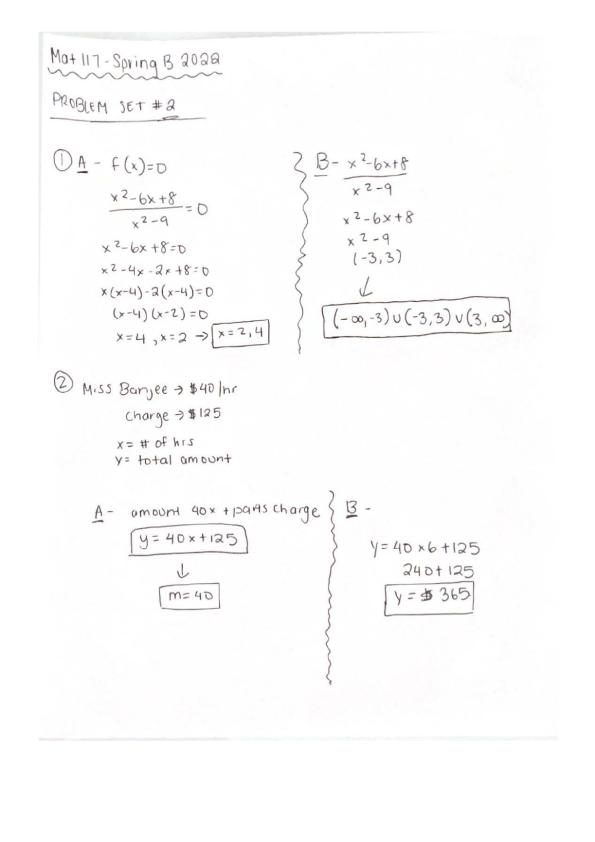 Mat 117 - Spring B 2022
PROBLEM SET #2
① A - f(x)=0
x²-6x+8 / x²-9 = 0
x²-6x+8=0
x²-4x-2x+8=0
x(x-4)-2(x-4)=0
(x-4)(x-2)=0
x=4, x=2 → x=2,4
B - x²-6x+8 / x²-9
x²-6x+8
x²-9
(-3,3)
↓
(-∞,-3)∪(-3,3)∪(3,∞)
② Miss Banjee → $40/hr
Charge → $125
x= # of hrs
y= total amount
A - amount 40x + parts charge
y=40x+125
↓
m=40
B -
y=40x6+125
240+125
y=$365